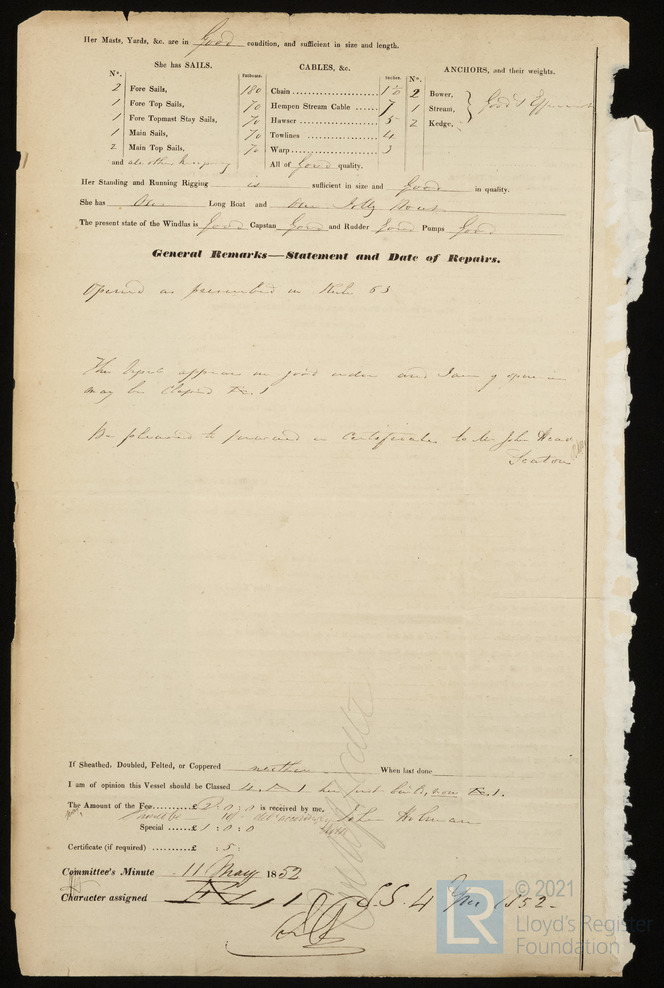 Her Masts, Yards, &c. are in Good condition, and sufficient in size and length.
She has SAILS.
CABLES, &c.
ANCHORS, and their weights.
N°.
Fathoms.
Inches.
N°.
2 Fore Sails,
1 Fore Top Sails,
1 Fore Topmast Stay Sails,
1 Main Sails,
2 Main Top Sails,
and all other
180 Chain
70 Hempen Stream Cable 7
70 Hawser 5
70 Towlines 4
70 Warp 3
All of Good quality.
2 Bower,
1 Stream,
2 Kedge,
Good & Efficient
Her Standing and Running Rigging is sufficient in size and Good in quality.
She has One Long Boat and One Jolly Boat
The present state of the Windlas is Good Capstan Good and Rudder Good Pumps Good
General Remarks—Statement and Date of Repairs.
Opened as prescribed in Rule 53
This Vessel appears in good order and I am of opinion
may be Classed Æ 1
Be pleased to forward a Certificate to Mr John Head
Seaton
If Sheathed, Doubled, Felted, or Coppered neither When last done
I am of opinion this Vessel should be Classed
The Amount of the Fee £2 : 0 : 0 is received by me,
John Holman
Special £1 : 0 : 0
Certificate (if required) £ : 5 :
Committee's Minute 11 May 1852
Character assigned
S.S. 4 Yrs 1852-
LR
© 2021
Lloyd's Register
Foundation